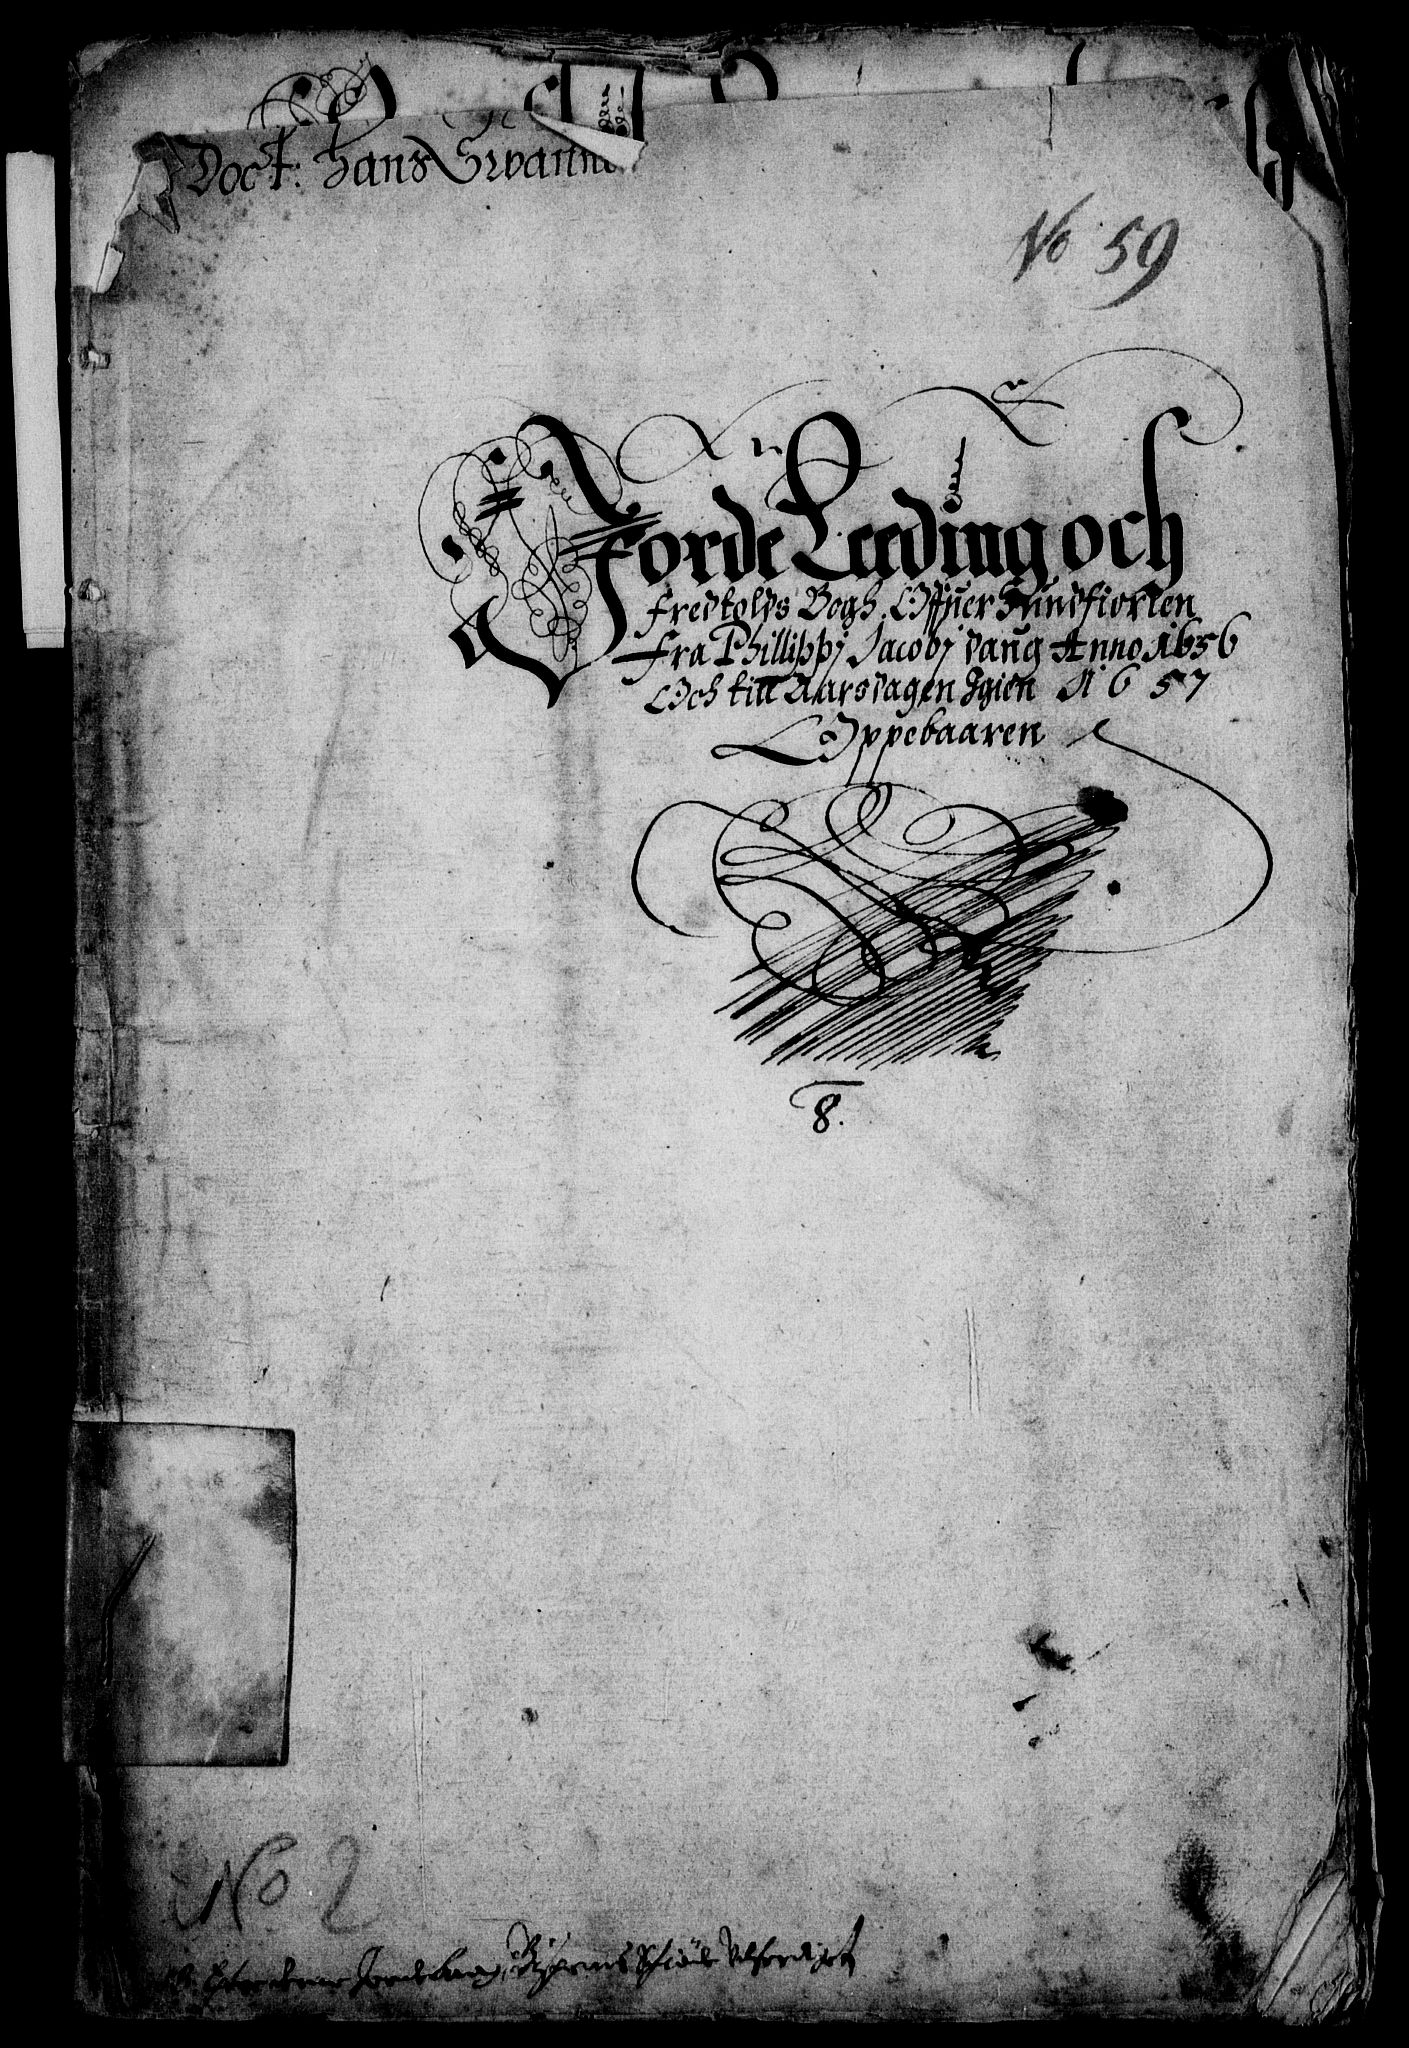 Doct: Hans Svanni
No 59
Jorde Leeding och
fredtolds Bogh Offuer Sundfiorden
Fra Phillippj Jacobj daug Anno 1656
Och till Aarsdagen Igien 1657
Oppebaaren
8.
No 2